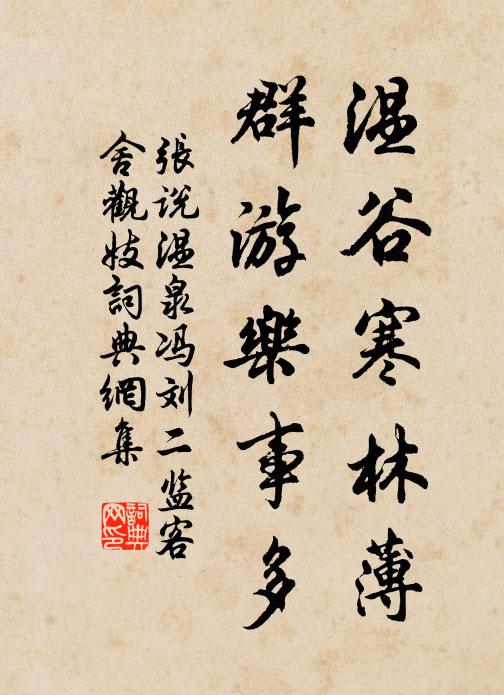 温谷寒林薄
群游樂事多
張说温泉冯刘二监客
舍觀妓詞典網集
詞典
网印